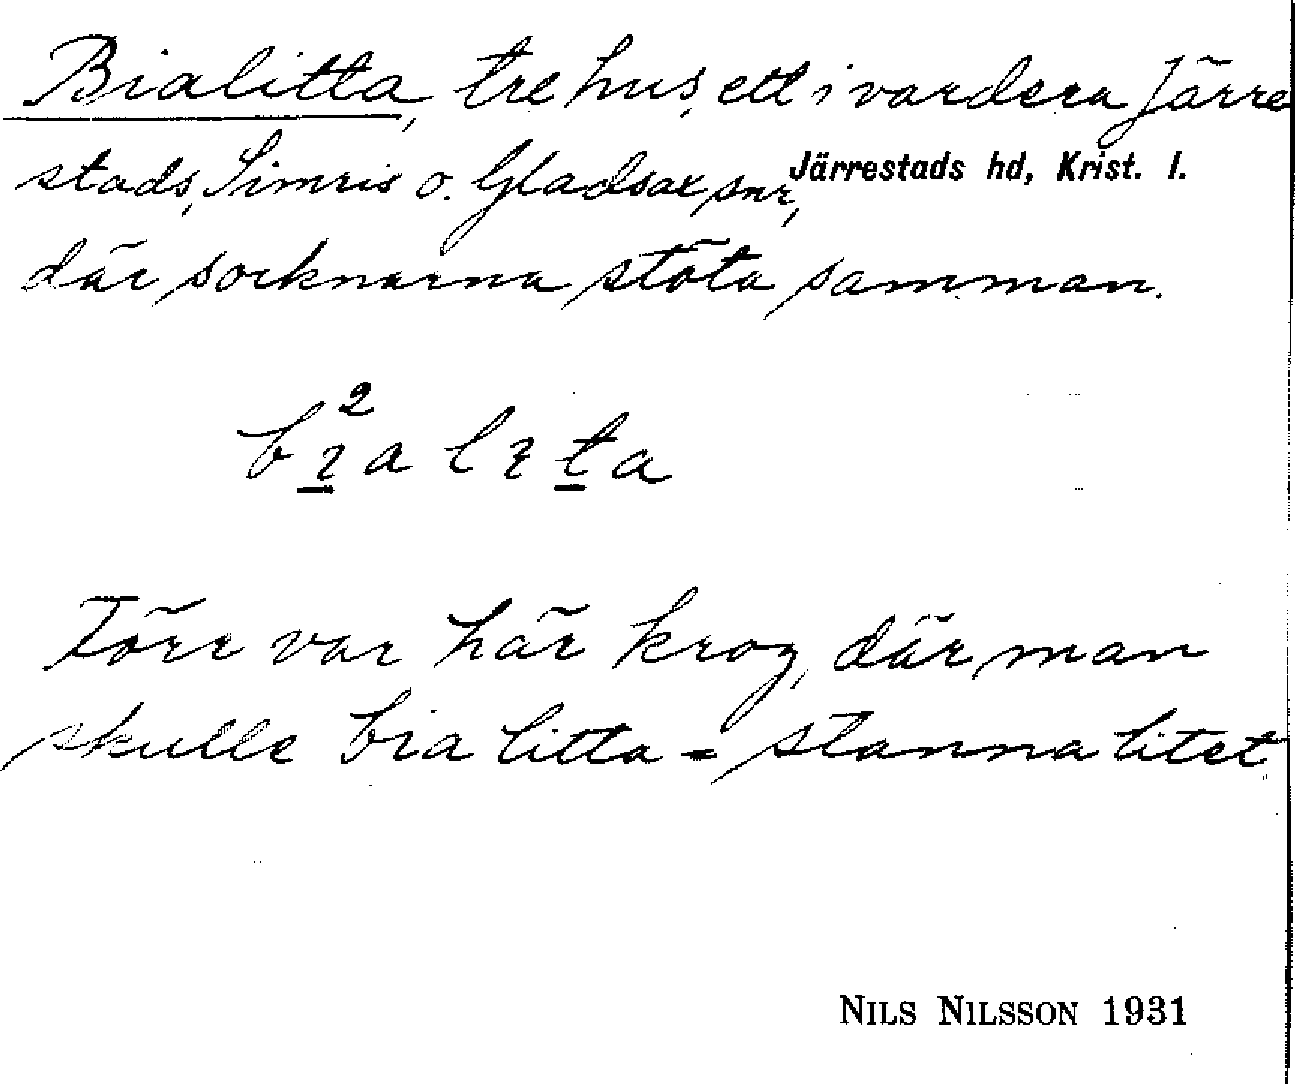 Bialitta, tre hus, ett i vardera Järre
stads, Simris o. Gladsax snr,
Järrestads hd, Krist. l.
där socknarna stöta samman.
b²ıa lıta
Förr var här krog, där man
skulle bia litta = stanna litet
NILS NILSSON 1931